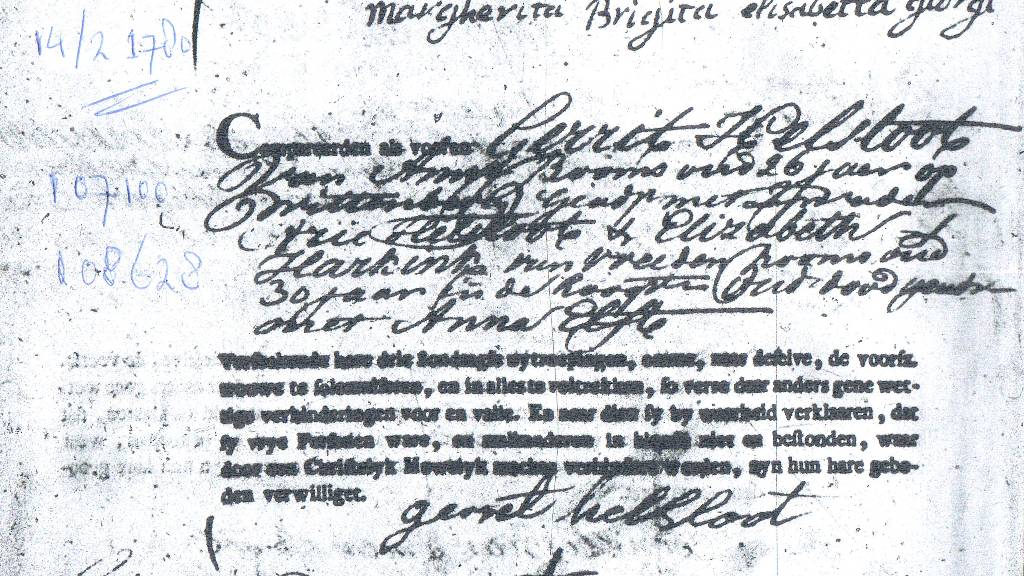 Margherita Brigita elisabetta giorgi
14/2 1780
Compareerden als vooren Gerrit Helsloot
van Amst Rooms oud 26 jaar op
geadst met
Helsloot & Elizabeth
107100
108.628
Harkink van Vreeden Rooms oud
30 jaar in de oud dood
Anna Elste
Versoekende hare drie Sondaagse uytroepingen, omme, naar deselve, de voorsz.
trouwe te solemniseren, en in alles te voltrekken, so verre daar anders gene wet-
tige verhinderingen voor en valle. En naar dien sy by waarheid verklaaren, dat
sy vrye Persoonen ware, en malkanderen in bloede niet en bestonden, waar
door een Christelyk Houwelyk mochte verhindert werden, zyn hun hare gebo-
den verwilliget.
gerret helsloot